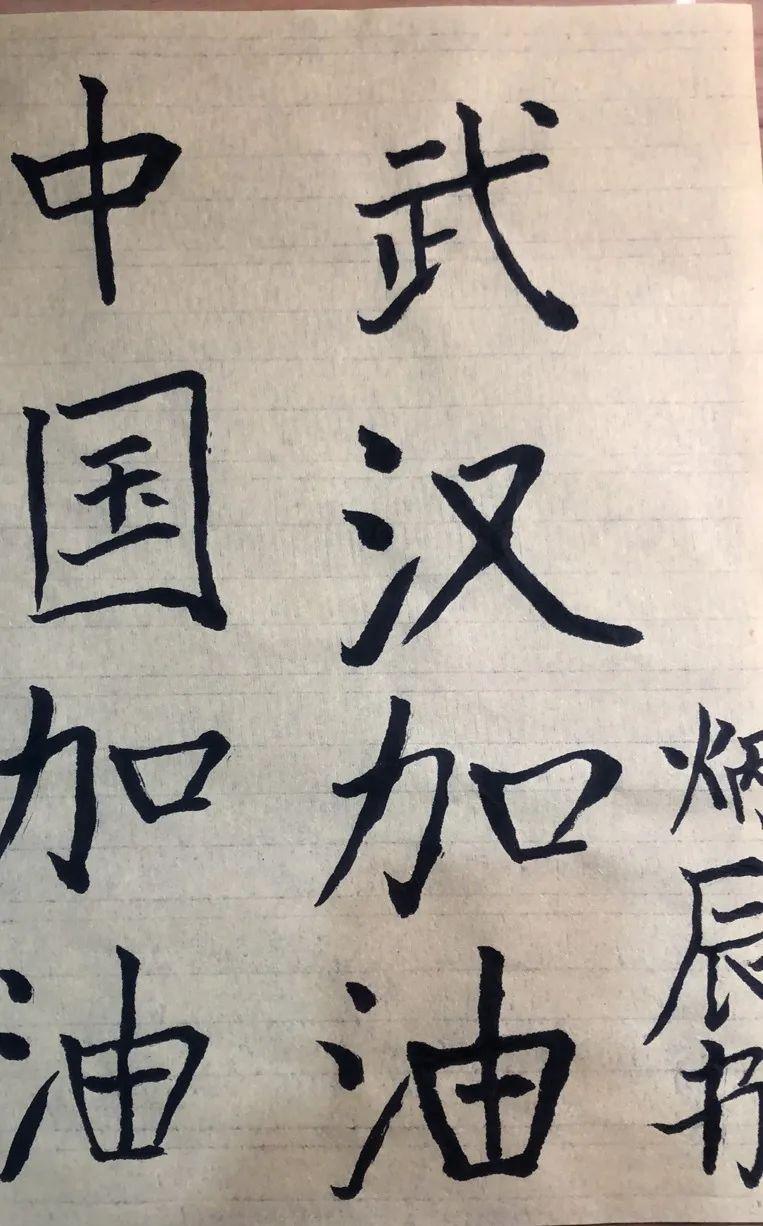 武汉加油
中国加油
炳辰